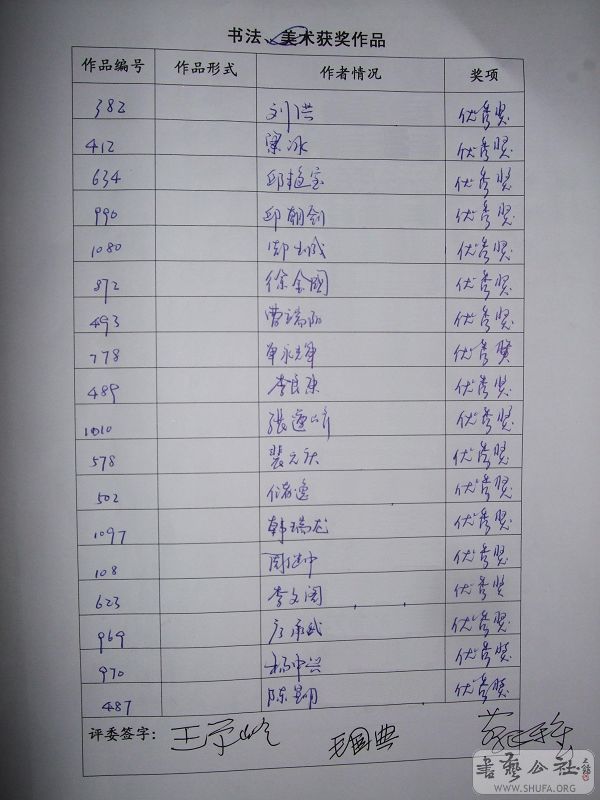 书法、美术获奖作品
作品编号 作品形式 作者情况 奖项
382 刘洪 优秀奖
412 梁冰 优秀奖
634 邱桂宝 优秀奖
990 邱朝剑 优秀奖
1080 优秀奖
872 徐金国 优秀奖
493 曹瑞阳 优秀奖
778 单永军 优秀奖
489 李良东 优秀奖
1010 张 优秀奖
578 裴元 优秀奖
502 优秀奖
1097 韩瑞龙 优秀奖
108 周继中 优秀奖
623 李文阁 优秀奖
969 承武 优秀奖
970 杨中兴 优秀奖
487 陈明 优秀奖
评委签字: 王 国典
書藝公社
WWW.SHUFA.ORG